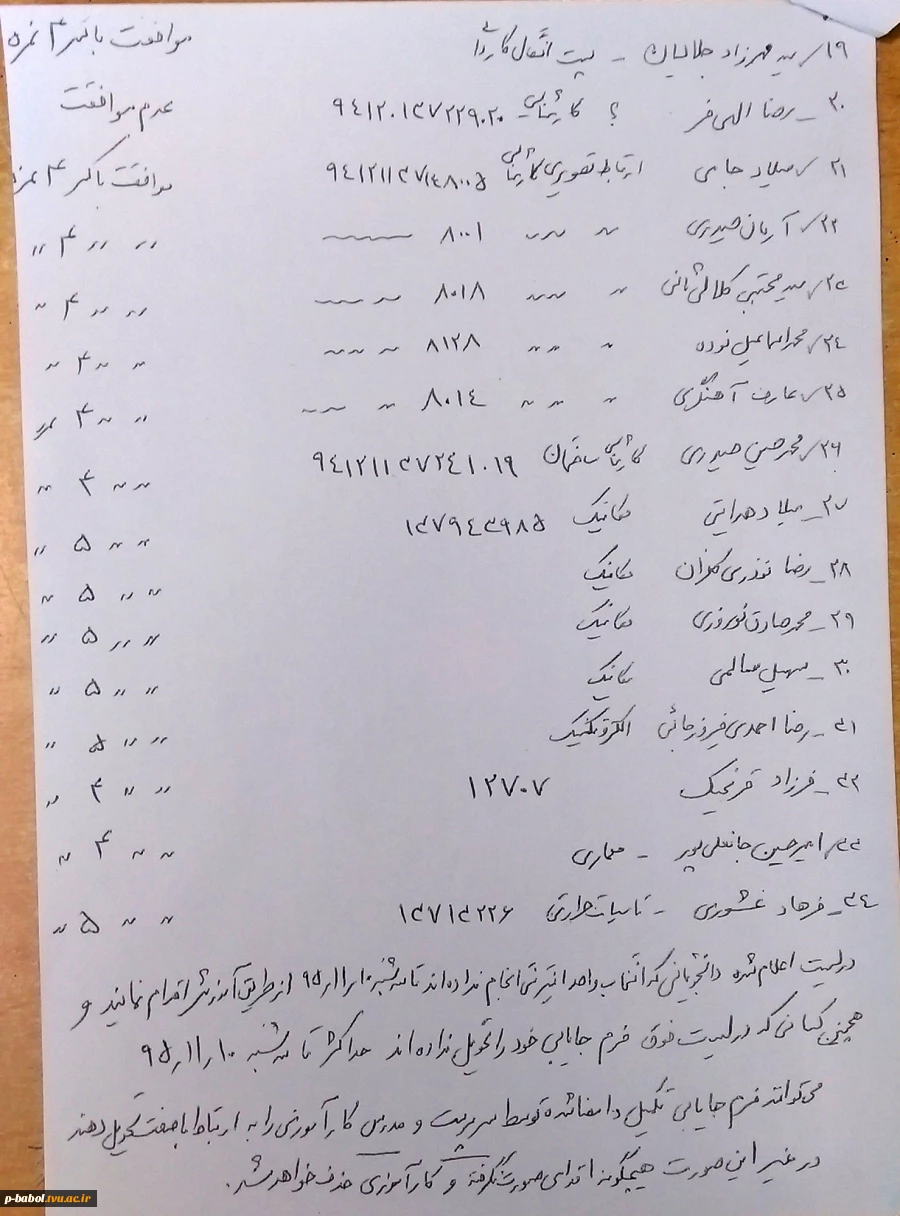 ۱۹/ سید مهرزاد جلالیان - پست انتقال کاردانی موافقت با کسر ۴ نمره
۲۰- رضا الهی فر ؟ کارشناسی ۹٤۱۲۰۱۳۷۲۲۹۰۲۰ عدم موافقت
۲۱/ میلاد حاجی ارتباط تصویری کارشناسی ۹٤۱۲۱۱۳۷۱٤۸۰۰۵ موافقت با کسر ۴ نمره
۲۲/ آرمان حیدری ״ ״ ۸۰۰۱ ״ ״ ۴ ״
۲۳/ سید مجتبی کلالی ثانی ״ ״ ۸۰۱۸ ״ ״ ۴ ״
۲٤/ محمد اسماعیل نوده ״ ״ ۸۱۲۸ ״ ״ ۴ ״
۲۵/ عارف آهنگری ״ ״ ״ ۸۰۱٤ ״ ״ ۴ نمره
۲۶/ محمد حسین حیدری کارشناسی ساختمان ۹٤۱۲۱۱۳۷۲٤۱۰۱۹ ״ ״ ۴ ״
۲۷- میلاد هدایتی مکانیک ۱۳۷۹٤۳۹۸۵ ״ ״ ۵ ״
۲۸- رضا نوذری مکانیک ״ ״ ۵ ״
۲۹- محمد صادق نوروزی مکانیک ״ ״ ۵ ״
۳۰- سهیل سالمی مکانیک ״ ״ ۵ ״
۳۱- رضا احمدی فیروزجائی الکتروتکنیک ״ ״ ۵ ״
۳۲- فرزاد قرنجیک ۱۲۷۰۷ ״ ״ ۴ ״
۳۳/ امیرحسین جانعلی پور - معماری ״ ״ ۴ ״
۳٤- فرهاد غشوری - تاسیسات حرارتی ۱۳۷۱۳۲۲۶ ״ ״ ۵ ״
در لیست اعلام شده دانشجویانی که انتخاب واحد اینترنتی انجام نداده اند تا سه شنبه ۱۰ر۱۱ر۹۵ از طریق آموزش اقدام نمایند و
همچنین کسانی که در لیست فوق فرم جایابی خود را تحویل نداده اند حداکثر تا سه شنبه ۱۰ر۱۱ر۹۵
می توانند فرم جایابی تکمیل و امضا شده توسط سرپرست و مدرس کارآموزی را به ارتباط با صنعت تحویل دهند
در غیر این صورت هیچگونه اقدامی صورت نگرفته و کارآموزی حذف خواهد شد.
p-babol.tvu.ac.ir